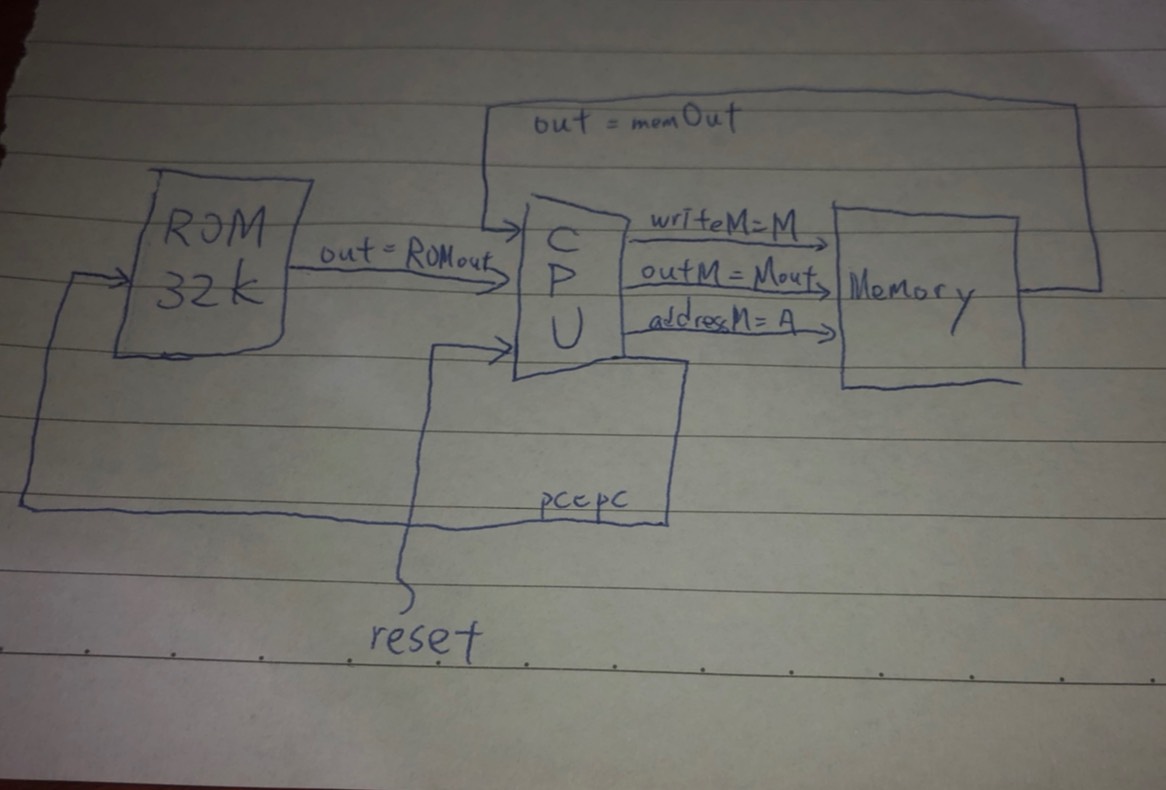 out = memOut
ROM
32k
out = ROMout
C
P
U
writeM=M
outM = Mout
addressM= A
Memory
pc=pc
reset